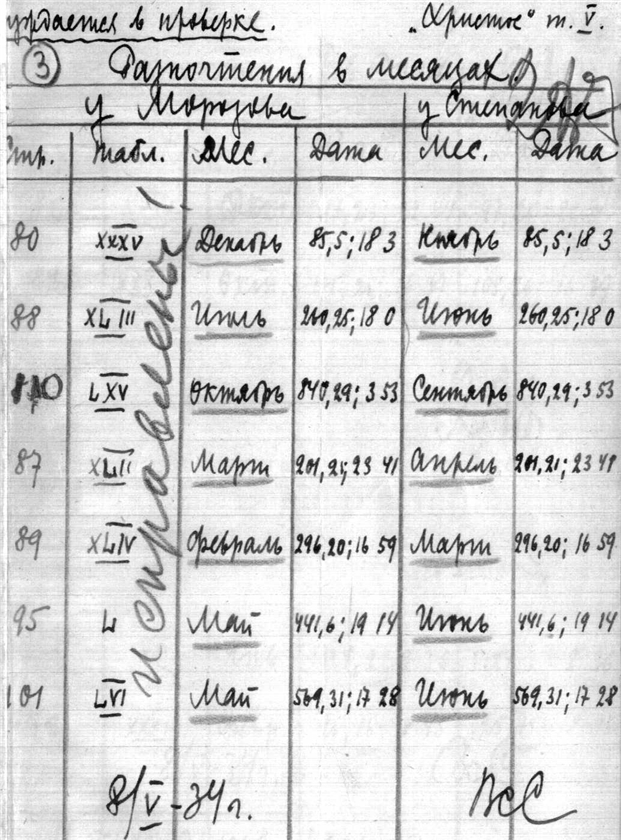 ждается в проверке. „Христос“ т. V.
3 Разночтения в месяцах
у Морозова у Степанова
Стр. табл. Мес. Дата Мес. Дата
80 XXXV Декабрь 85,5; 18 3 Ноябрь 85,5; 18 3
88 XLIII Июль 260,25; 18 0 Июнь 260,25; 18 0
110 LXV Октябрь 840,29; 3 53 Сентябрь 840,29; 3 53
87 XLII Март 201,21; 23 41 Апрель 201,21; 23 41
89 XLIV Февраль 296,20; 16 59 Март 296,20; 16 59
95 L Май 441,6; 19 14 Июнь 441,6; 19 14
101 LVI Май 569,31; 17 28 Июнь 569,31; 17 28
исправлены!
8/V-34 г. ВсС